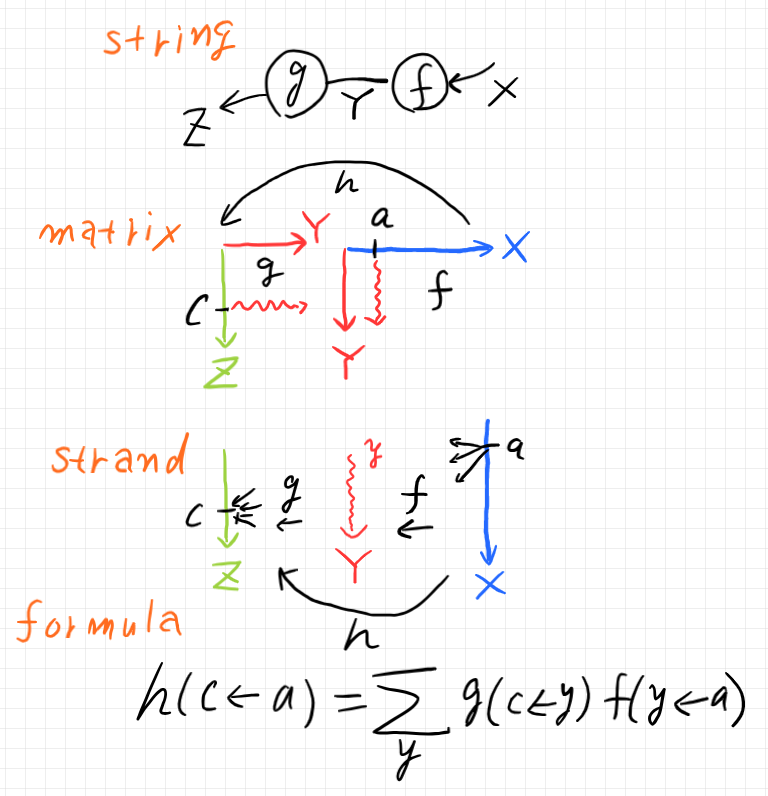 string
Z g Y f X
h
matrix
Y a X
g f
C
Z Y
strand
y a
c g f
Z Y X
formula
h
h(c←a) = ∑ g(c←y) f(y←a)
y